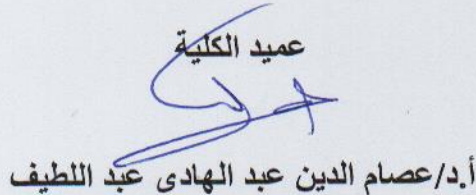 عميد الكلية
أ.د/عصام الدين عبد الهادى عبد اللطيف